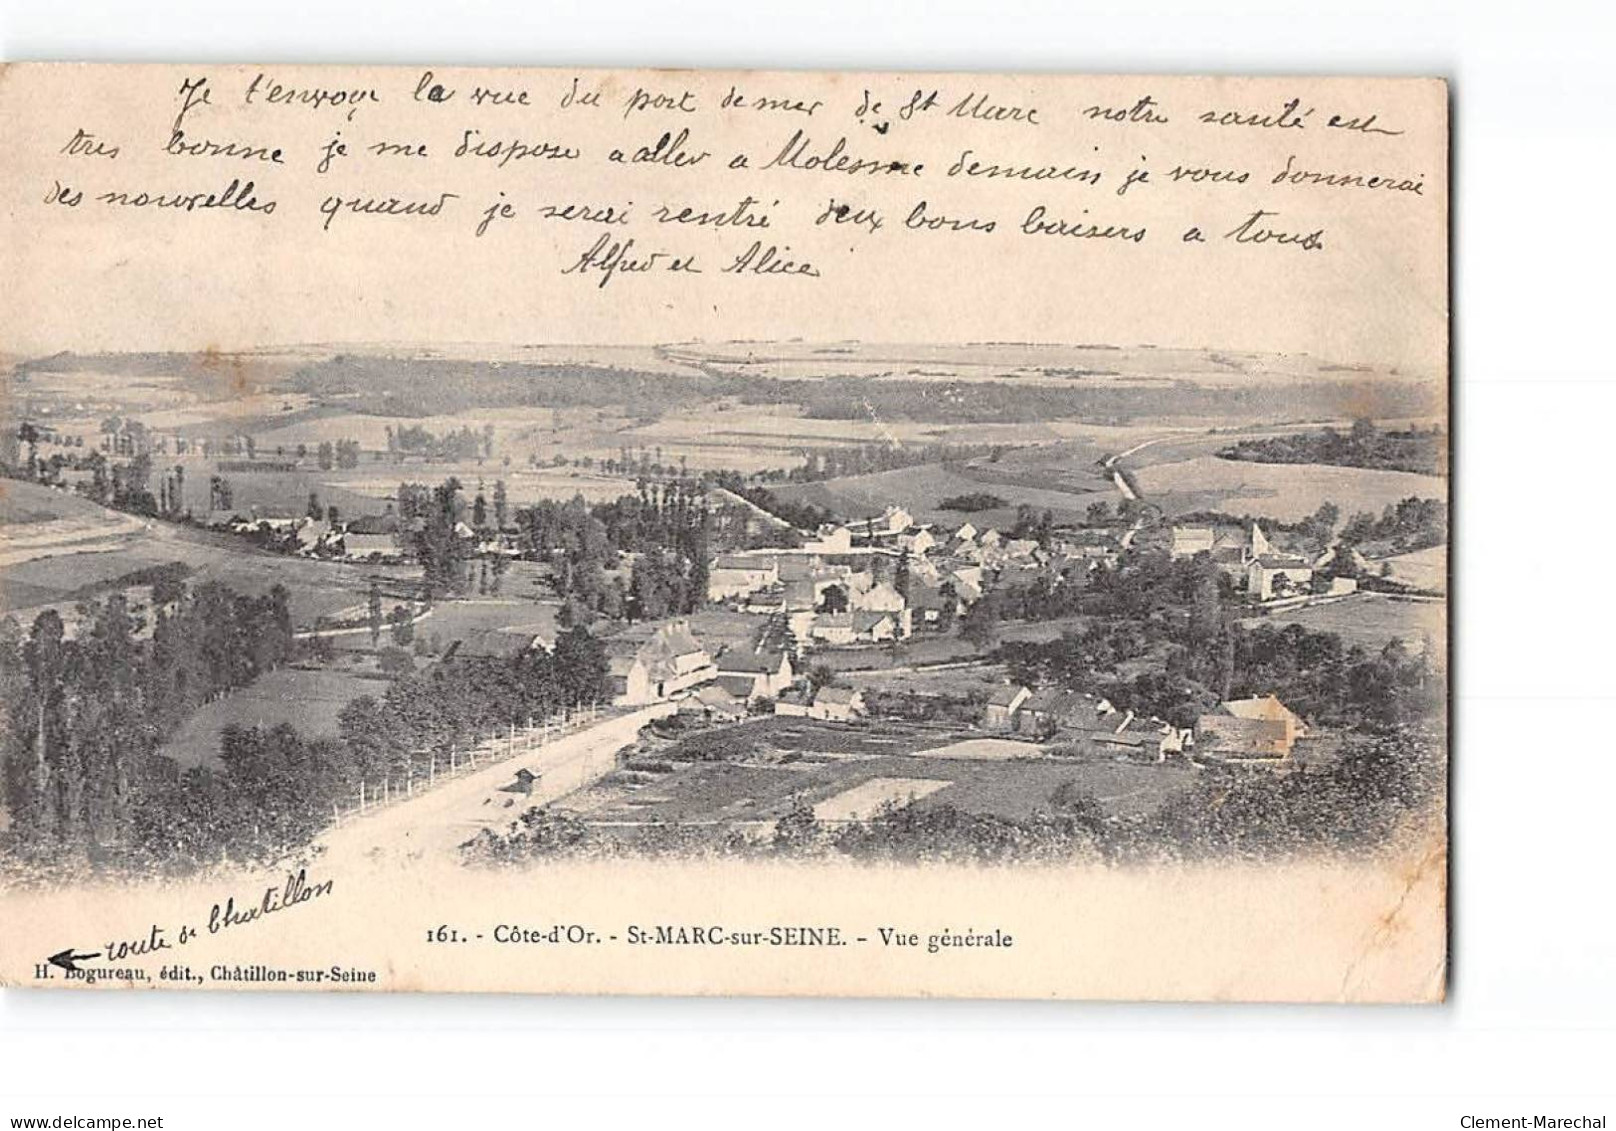 Je t'envoye la vue du port de mer de St Marc notre santé est
tres bonne je me dispose a aller a Molesme demain je vous donnerai
des nouvelles quand je serai rentré deux bons baisers a tous
Alfred et Alice
route de Chatillon
161. - Côte-d'Or. - St-MARC-sur-SEINE. - Vue générale
H. Bogureau, édit., Châtillon-sur-Seine
www.delcampe.net
Clement-Marechal